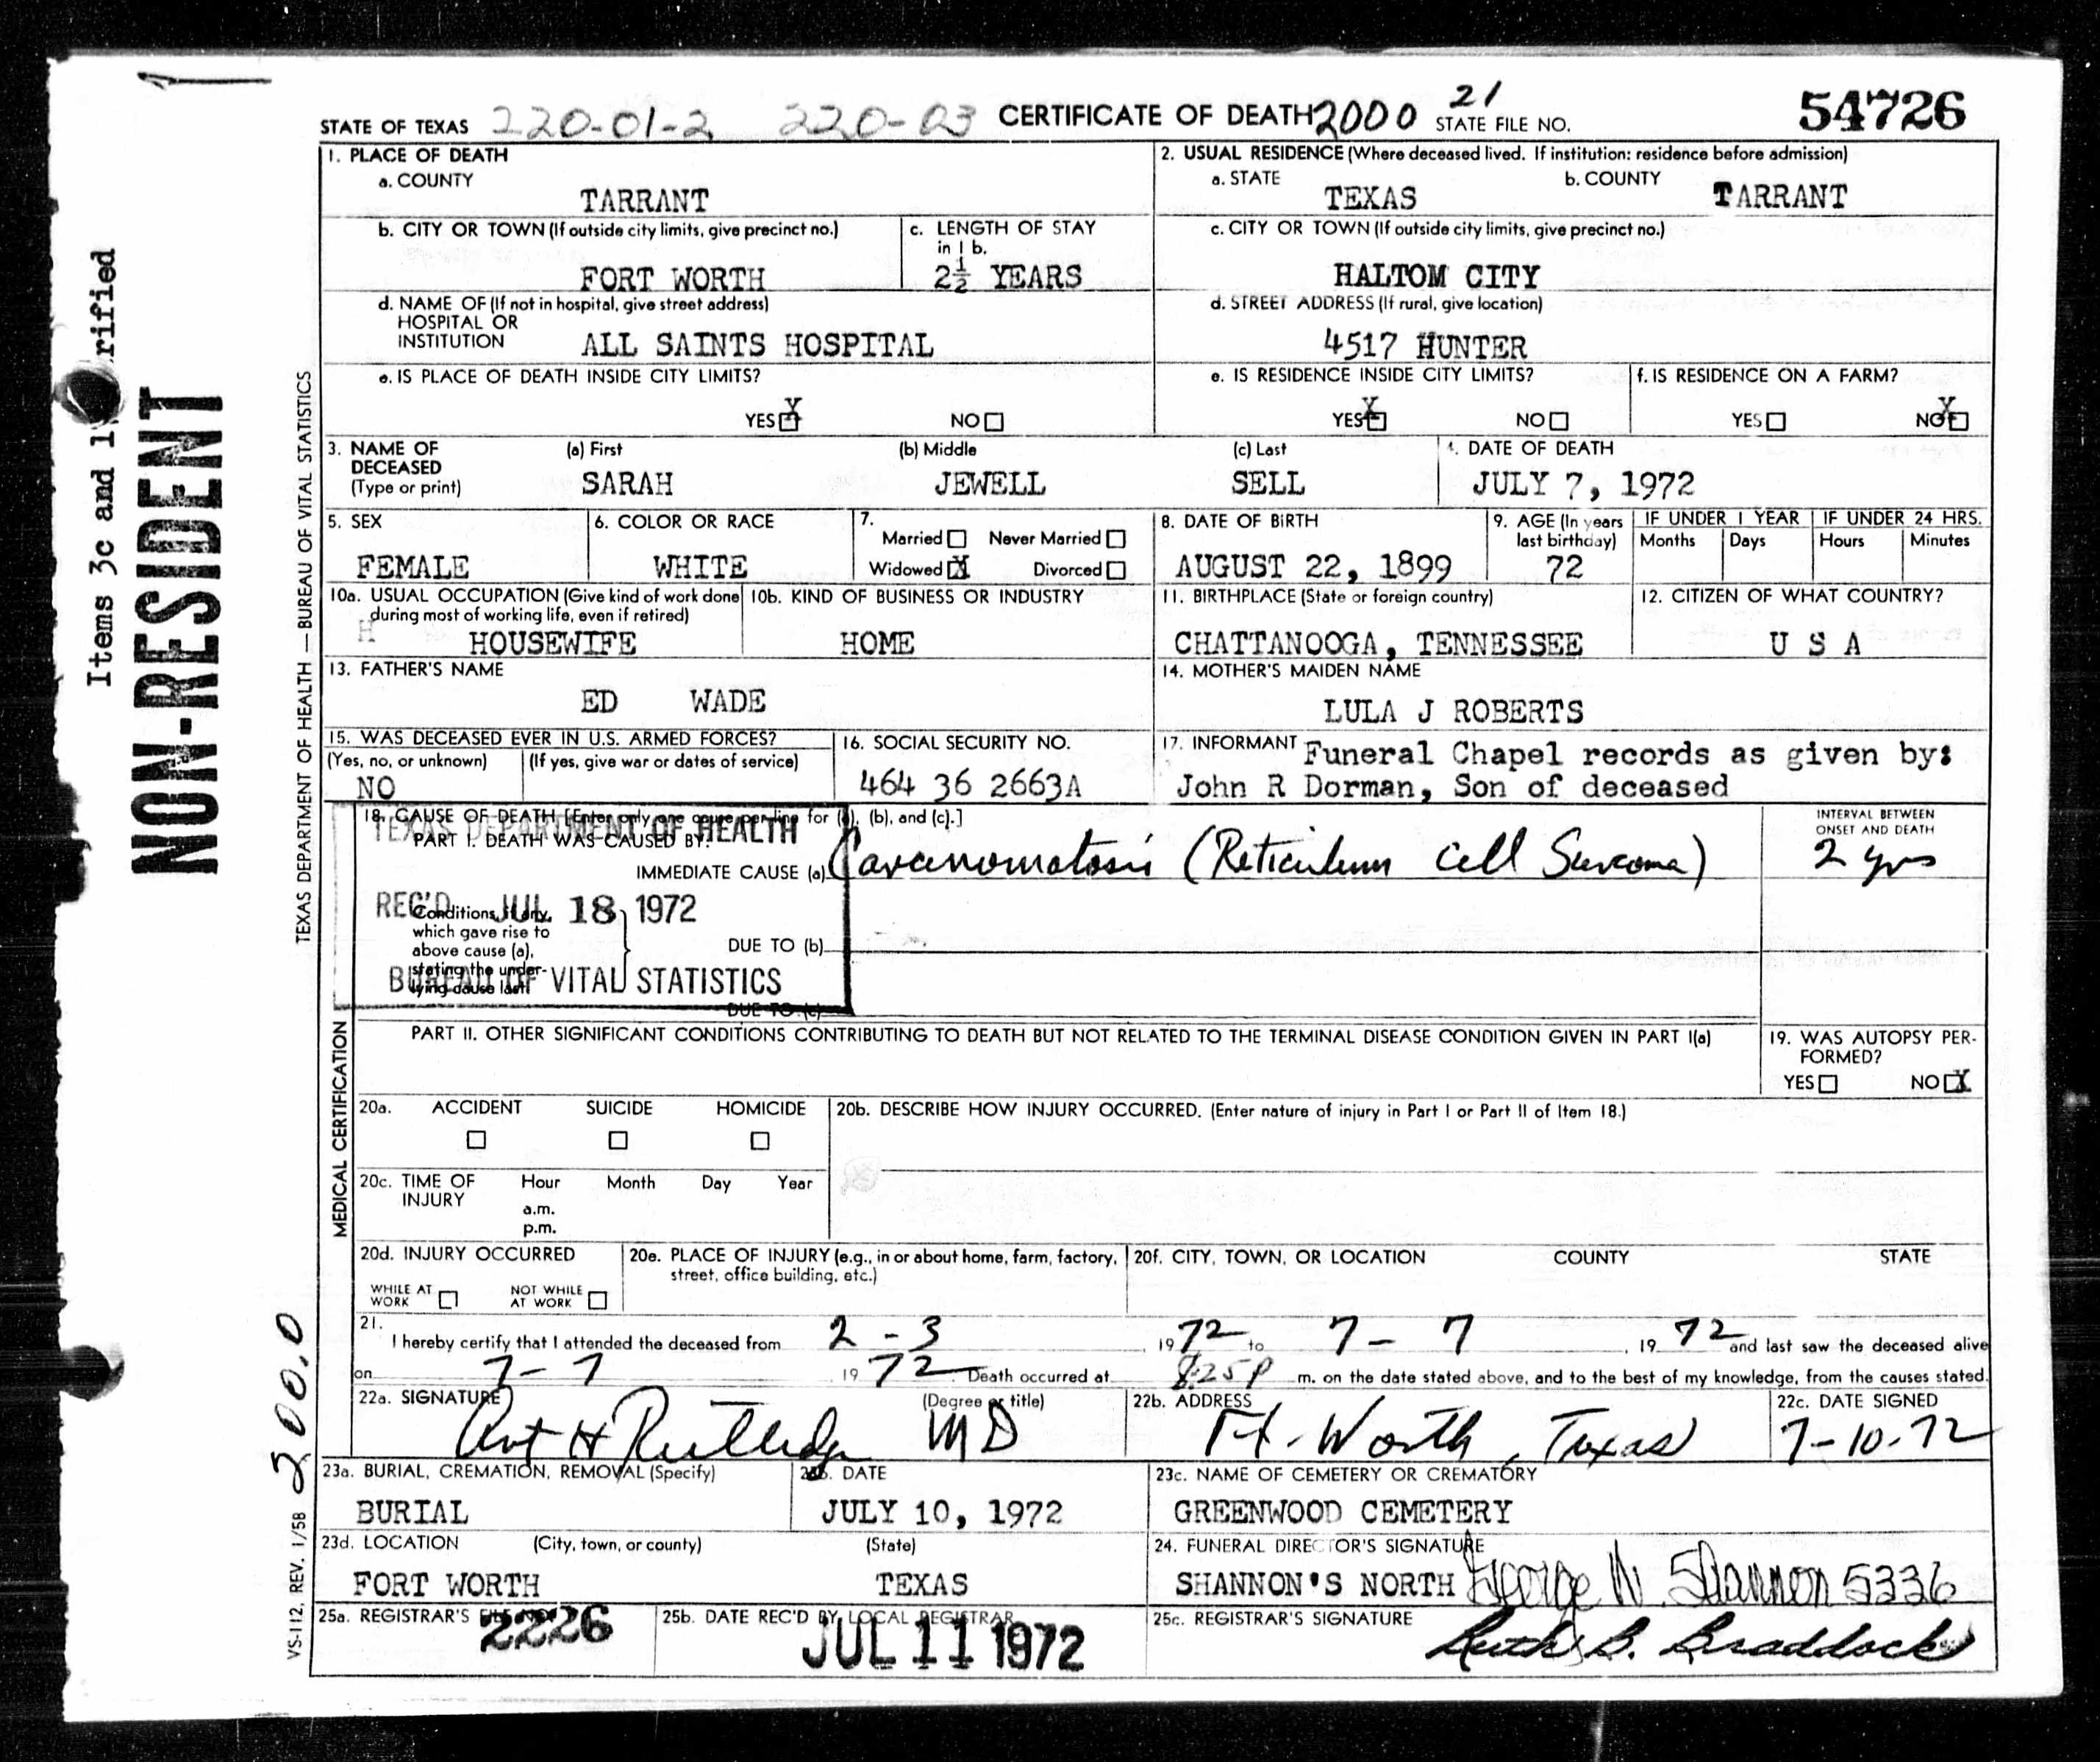 STATE OF TEXAS 220-01-2 220-03 CERTIFICATE OF DEATH 2000 21 STATE FILE NO. 54726
1. PLACE OF DEATH
a. COUNTY
TARRANT
2. USUAL RESIDENCE (Where deceased lived. If institution: residence before admission)
a. STATE b. COUNTY
TEXAS TARRANT
b. CITY OR TOWN (If outside city limits, give precinct no.)
FORT WORTH
c. LENGTH OF STAY
in 1 b.
2½ YEARS
c. CITY OR TOWN (If outside city limits, give precinct no.)
HALTOM CITY
d. NAME OF (If not in hospital, give street address)
HOSPITAL OR
INSTITUTION ALL SAINTS HOSPITAL
d. STREET ADDRESS (If rural, give location)
4517 HUNTER
e. IS PLACE OF DEATH INSIDE CITY LIMITS?
YES X NO
e. IS RESIDENCE INSIDE CITY LIMITS?
YES X NO
f. IS RESIDENCE ON A FARM?
YES NO X
3. NAME OF
DECEASED
(Type or print)
(a) First (b) Middle (c) Last
SARAH JEWELL SELL
4. DATE OF DEATH
JULY 7, 1972
5. SEX
FEMALE
6. COLOR OR RACE
WHITE
7.
Married Never Married
Widowed X Divorced
8. DATE OF BIRTH
AUGUST 22, 1899
9. AGE (In years
last birthday)
72
IF UNDER 1 YEAR
Months Days
IF UNDER 24 HRS.
Hours Minutes
10a. USUAL OCCUPATION (Give kind of work done
during most of working life, even if retired)
H HOUSEWIFE
10b. KIND OF BUSINESS OR INDUSTRY
HOME
11. BIRTHPLACE (State or foreign country)
CHATTANOOGA, TENNESSEE
12. CITIZEN OF WHAT COUNTRY?
U S A
13. FATHER'S NAME
ED WADE
14. MOTHER'S MAIDEN NAME
LULA J ROBERTS
15. WAS DECEASED EVER IN U.S. ARMED FORCES?
(Yes, no, or unknown) (If yes, give war or dates of service)
NO
16. SOCIAL SECURITY NO.
464 36 2663A
17. INFORMANT Funeral Chapel records as given by:
John R Dorman, Son of deceased
18. CAUSE OF DEATH [Enter only one cause per line for (a), (b), and (c).]
TEXAS DEPARTMENT OF HEALTH
PART I. DEATH WAS CAUSED BY:
IMMEDIATE CAUSE (a) Carcinomatosis (Reticulum cell Sarcoma)
INTERVAL BETWEEN
ONSET AND DEATH
2 yrs
REC'D JUL 18 1972
Conditions, if any,
which gave rise to
above cause (a),
stating the under-
lying cause last.
DUE TO (b)
BUREAU OF VITAL STATISTICS
DUE TO (c)
PART II. OTHER SIGNIFICANT CONDITIONS CONTRIBUTING TO DEATH BUT NOT RELATED TO THE TERMINAL DISEASE CONDITION GIVEN IN PART I(a)
19. WAS AUTOPSY PER-
FORMED?
YES NO X
20a. ACCIDENT SUICIDE HOMICIDE
20b. DESCRIBE HOW INJURY OCCURRED. (Enter nature of injury in Part I or Part II of Item 18.)
20c. TIME OF
INJURY
Hour Month Day Year
a.m.
p.m.
20d. INJURY OCCURRED
WHILE AT
WORK
NOT WHILE
AT WORK
20e. PLACE OF INJURY (e.g., in or about home, farm, factory,
street, office building, etc.)
20f. CITY, TOWN, OR LOCATION COUNTY STATE
21.
I hereby certify that I attended the deceased from 2 - 3, 1972 to 7 - 7, 1972 and last saw the deceased alive
on 7-7 1972. Death occurred at 8:25 P m. on the date stated above, and to the best of my knowledge, from the causes stated.
22a. SIGNATURE (Degree or title)
Art H Rutledge MD
22b. ADDRESS
Ft. Worth, Texas
22c. DATE SIGNED
7-10-72
23a. BURIAL, CREMATION, REMOVAL (Specify)
BURIAL
23b. DATE
JULY 10, 1972
23c. NAME OF CEMETERY OR CREMATORY
GREENWOOD CEMETERY
23d. LOCATION (City, town, or county) (State)
FORT WORTH TEXAS
24. FUNERAL DIRECTOR'S SIGNATURE
SHANNON'S NORTH George N. Shannon 5336
25a. REGISTRAR'S FILE NO.
2226
25b. DATE REC'D BY LOCAL REGISTRAR
JUL 11 1972
25c. REGISTRAR'S SIGNATURE
Ruth B. Braddock
Items 3c and 1 rified
NON-RESIDENT
TEXAS DEPARTMENT OF HEALTH — BUREAU OF VITAL STATISTICS
MEDICAL CERTIFICATION
VS-112, REV. 1/58
200.0